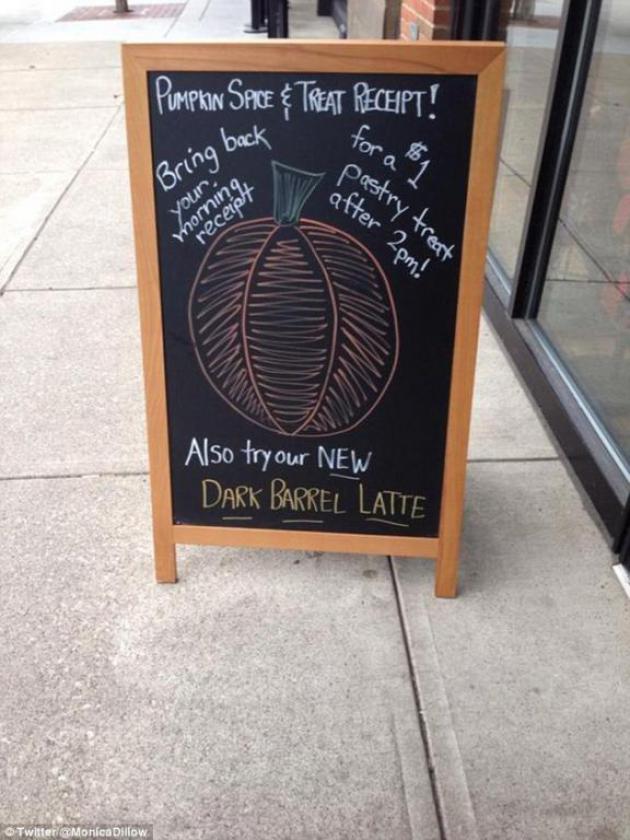 PUMPKIN SPICE & TREAT RECEIPT!
Bring back
your
morning
receipt
for a $1
pastry treat
after 2pm!
Also try our NEW
DARK BARREL LATTE
© Twitter/@MonicaDillow